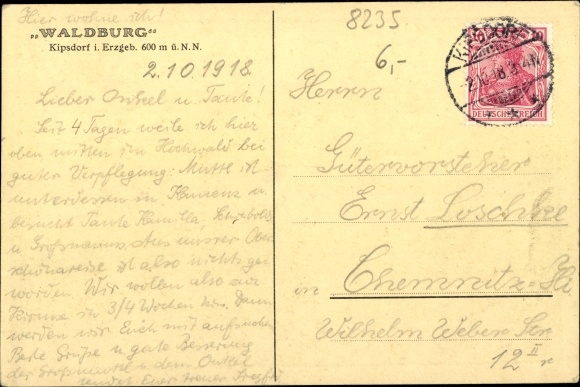 Hier wohne ich!
„WALDBURG“
Kipsdorf i. Erzgeb. 600 m ü. N. N.
2.10.1918.
Lieber Onkel u. Tante!
Seit 4 Tagen weile ich hier
oben mitten im Hochwald bei
guter Verpflegung. Mutti ist
unterdessen in Kamenz u.
besucht Tante
u. Großmama. Aus unserer
ist also nichts ge
worden. Wir wollen also
in 3/4 Wochen
werden wir Euch mit aufsuchen
Beste Grüße u. gute Besserung
der Großmutter u. dem Onkel
sendet Euer treuer
8235
6,-
KIPSDORF
2.10.18
10
DEUTSCHES REICH
Herrn
Gütervorsteher
Ernst Loschke
in Chemnitz-
Wilhelm Weber Str
12 II r